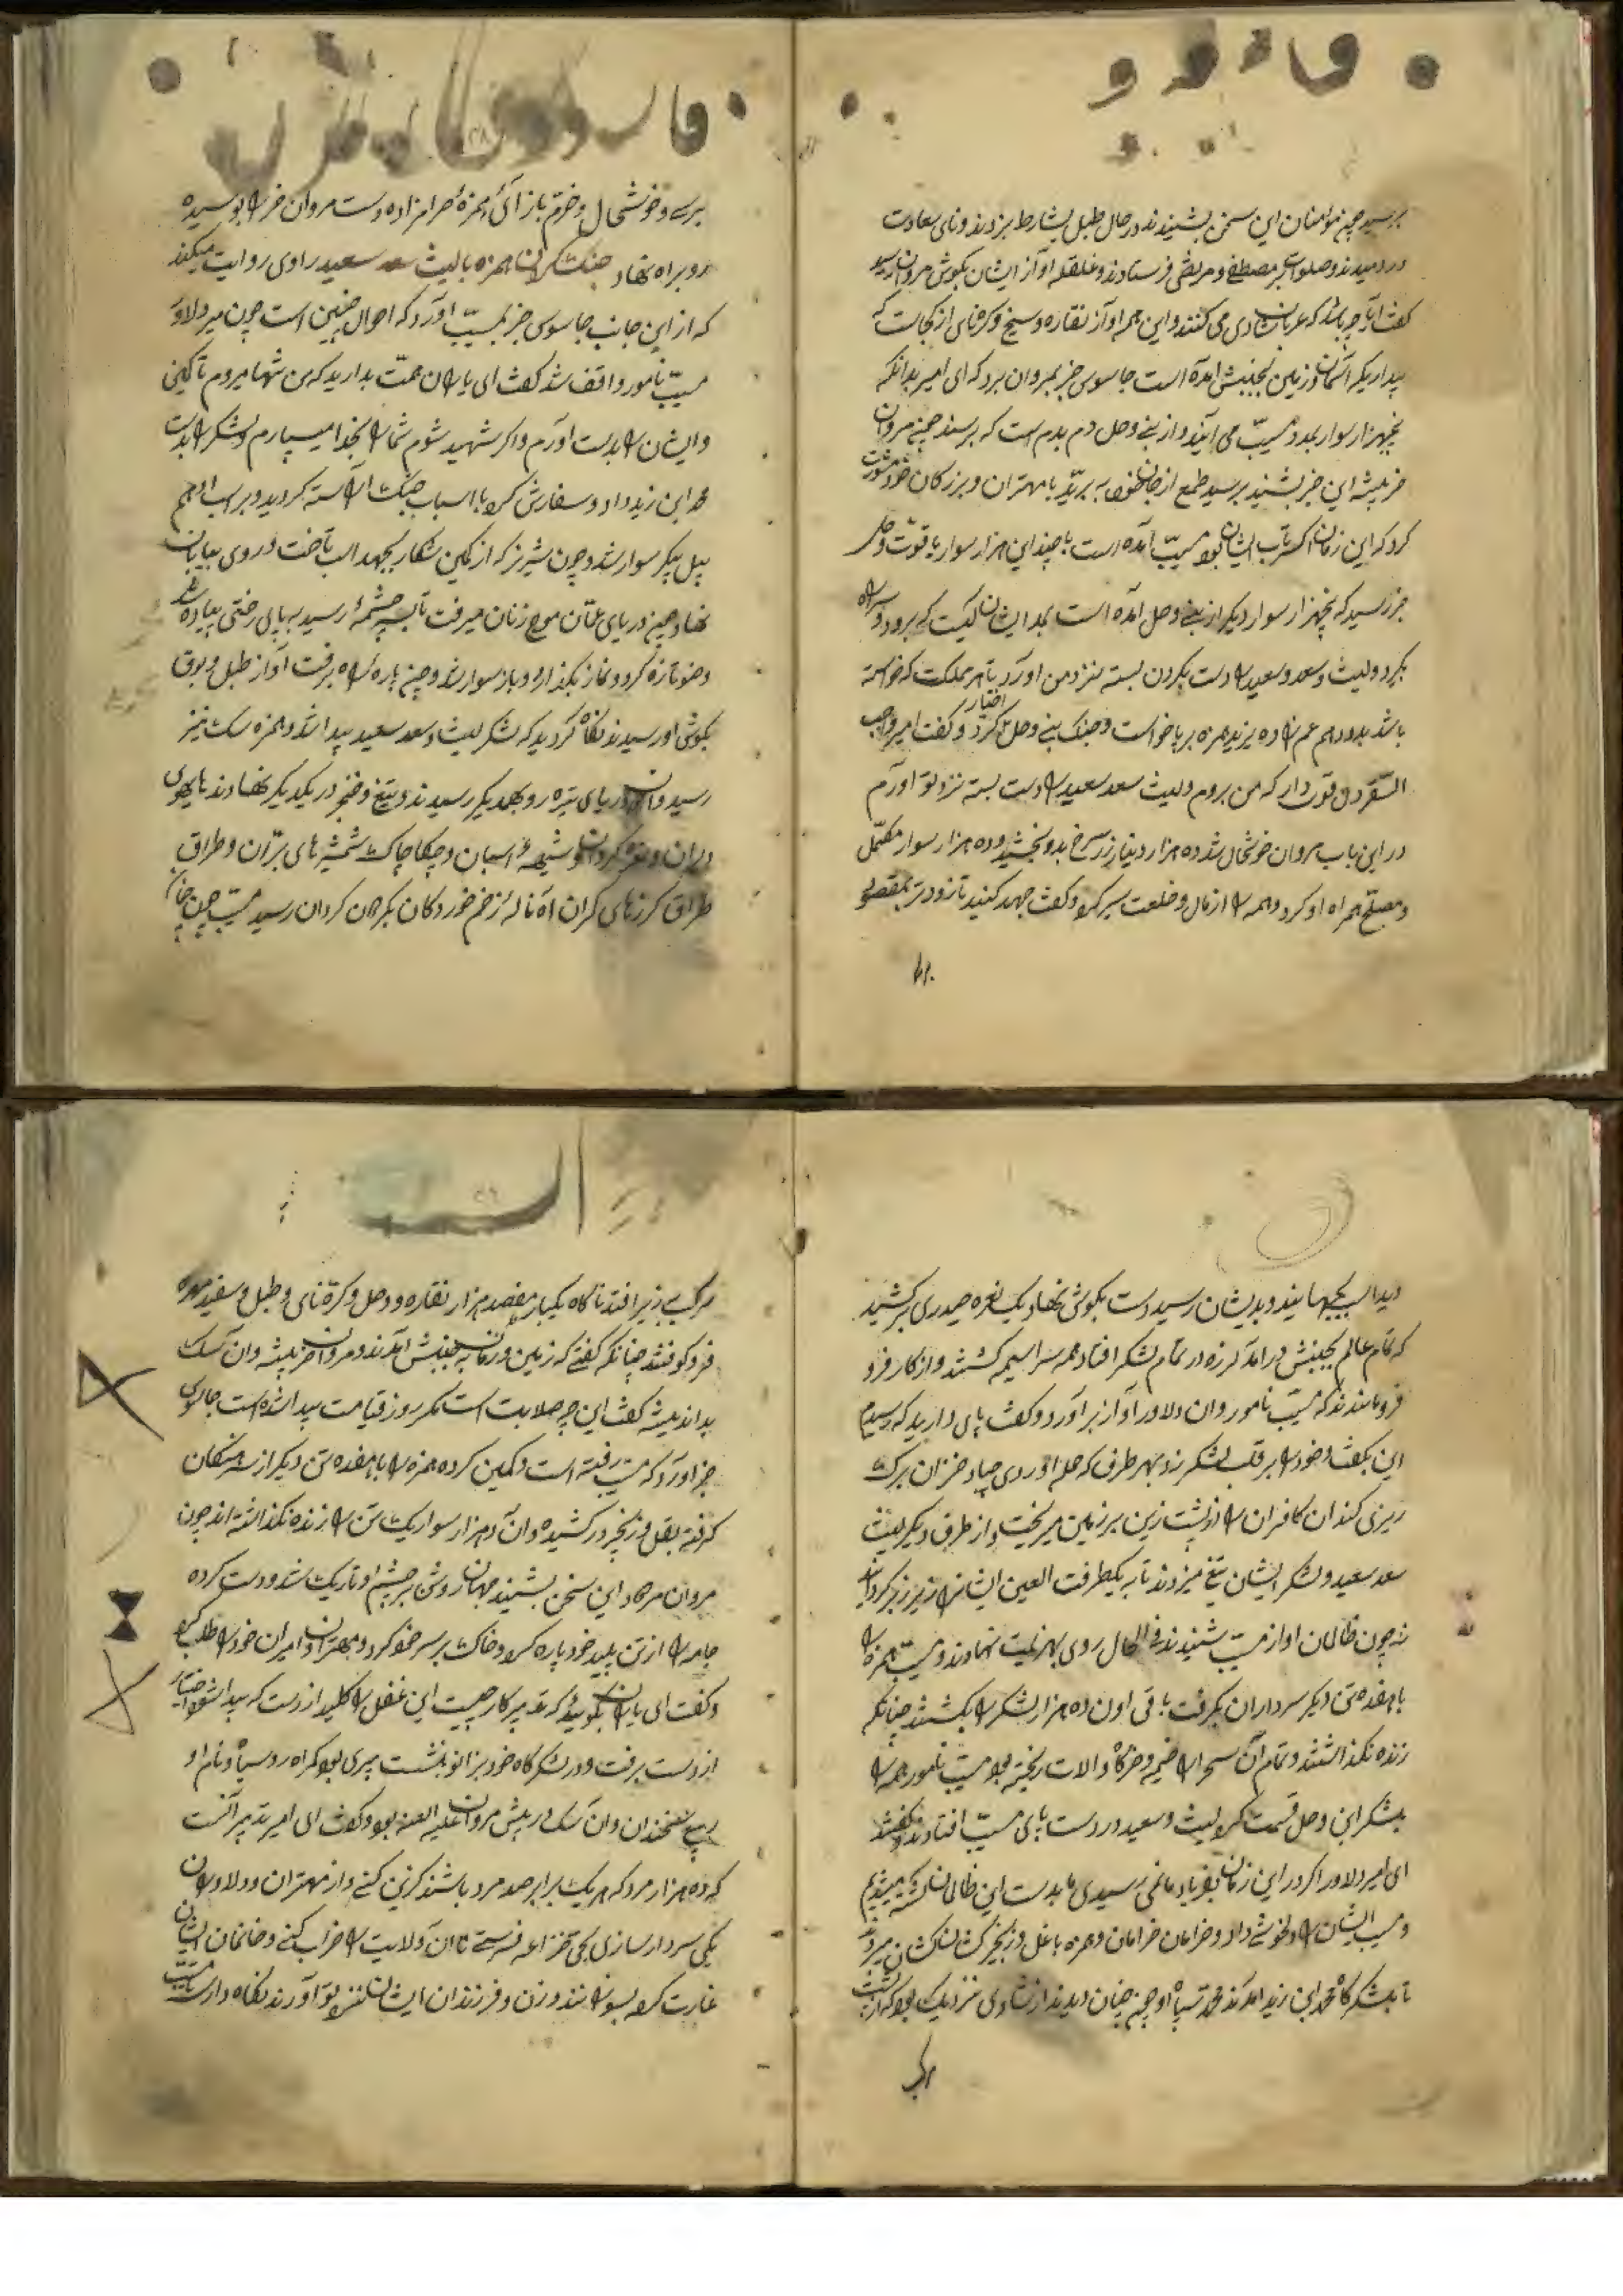 برسید چون مؤمنان این سخن بشنیدند در حال طبل بشارط بزدند و نای سعادت
در دمیدند و صلوات بر مصطفی و مرتضی فرستادند و غلغله آواز ایشان بگوش مروان رسید
گفت آیا چه باشد که عربان شادی می کنند و این همه آواز نقاره و سنج و کرنای از کجاست که
پنداری که آسمان و زمین بجنبش آمده است جاسوس خبر بمروان برد که ای امیر بدانکه
پنجهزار سوار بمدد مسیّب می آیند و از بنی وحل دم بدم است که برسند چون مروان
خر پیشه این خبر بشنید بترسید طمع از جان خود ببرید با مهتران و بزرگان خود مشورت
کرد که این زمان مسیّب آمده است با چندین هزار سوار با قوّت و
خبر رسید که پنجهزار سوار دیگر از بنی وحل آمده است بمدد ایشان کیست که برود و سر راه
بگیرد و لیث و سعد و سعید را دست بگردن بسته نزد من آورد تا هر مملکت که خواسته
باشد بدو دهم عم زاده یزید همزه بر پا خواست و جنگ بنی وحل اختیار کرد و گفت امیر واجب
السّقر دل قوی دار که من بروم و لیث سعد سعید را دست بسته نزد تو آورم
در این باب مروان خوشحال شد ده هزار دینار زر سرخ بدو بخشید و ده هزار سوار مکمّل
و مصلّح همراه او کرد و همه را از مال و خلعت سیر کرد و گفت جهد کنید تا زودتر بمقصود
برسی و خوشحال و خرّم باز آئی همزهٔ حرامزاده دست مروان خر را بوسیده
رو براه نهاد جنگ کردن همزه با لیث سعد سعید راوی روایت میکند
که از این جانب جاسوس خبر بمسیّب آورد که احوال چنین است چون میر دلاور
مسیّب نامور واقف شد گفت ای یاران همّت بدارید که من تنها میروم تا کمین
و ایشان را بدست آورم و اگر شهید شوم شما را بخدا میسپارم و لشکر را بدست
محمد ابن زید داد و سفارش کرد با اسباب جنگ آراسته گردید و بر اسب ادهم
پیل پیکر سوار شد و چون شیر نر که از کمین شکار بجهد اسب تاخت و روی ببیابان
نهاد و چون دریای عمّان موج زنان میرفت تا بسر چشمهٔ رسید به پای رختی پیاده شد
وضو تازه کرد و نماز بگذارد و باز سوار شد و چون پاره راه برفت آواز طبل و بوق
بگوش او رسید نگاه کرد دید که لشکر لیث و سعد سعید پیدا شد و همزه سک نیز
رسید و آن دو دریای تیره رو بهمدیگر رسیدند و تیغ و خنجر در یکدیگر نهادند هایهوی
دلیران و نعره گردان و شیههٔ اسبان و چکاچاک شمشیرهای برّان و طراق
طراق گرزهای گران آه ناله زخم خوردگان بگردون گردان رسید مسیّب چون چنان
دید اسب بجهانید و بدیشان رسید دست بگوش نهاد یک نعره حیدری برکشید
که تمام عالم بجنبش درآمد لرزه در تمام لشکر افتاد همه سراسیمه گشتند و از کار فرو
فرو ماندند که مسیّب نامور و آن دلاور آواز برآورد و گفت پای دارید که رسیدم
این بگفت و خود را بر قلب لشکر زد بهر طرف که حمله آوردی چو باد خزان برگ
ریزی کند آن کافران را از پشت زین بر زمین میریخت و از طرف دیگر لیث
سعد سعید و لشکر ایشان تیغ میزدند تا به یکطرفت العین ایشانرا زیر و زبر کردند
نه چون ظالمان آواز مسیّب شنیدند فی الحال روی بهزیمت نهادند و مسیّب همزه را
با هفده تن دیگر سرداران بگرفت باقی اون ده هزار لشکر را بکشتند چنانکه
زنده نگذاشتند و تمام آن سحرا خیمه و خرگاه و الات ریخته بود مسیّب نامور همه را
بلشکر ابن وحل قسمت کرد لیث و سعید در دست پای مسیّب افتادند و گفتند
ای امیر دلاور اگر در این زمان بفریاد ما نمی رسیدی ما بدست این ظالمان کشته میشدیم
و مسیب ایشان را دلخوشی داد و خرامان خرامان و همزه با غل و زنجیر کشان کشان میبرد
تا بلشکرگاه محمد ابن زید آمدند محمد و سپاه او چون چنان دیدند از شادی نزدیک بود که از پشت
مرکب بزیر افتد ناگاه یکبار هفصد هزار نقاره و دهل و کرّنای و طبل و سفید مهره
فرو کوفتند چنانکه گفتی که زمین و زمان بجنبش آمدند و مروان خر پیشه و آن سک
بد اندیشه گفت این چه صلابت است مگر روز قیامت پیدا شده است جاسوس
خبر آورد که مسیّب رفته است و کمین کرده همزه را با هفده تن دیگر از سرهنگان
گرفته بقل و زنجیر در کشیده و آن ده هزار سوار یک تن را زنده نگذاشته اند چون
مروان مرتد این سخن بشنید جهان روشن بر چشم او تاریک شد و دست کرده
جامه را از تن پلید خود پاره کرد و خاک بر سر خود کرد و مهتران و امیران خود را طلب کرد
و گفت ای یاران بگویید که تدبیر کار چیست این غفل را کلید از دست که پیدا شود اختیار
از دست برفت و در لشکرگاه خود بزانو بنشست پیری بود گمراه روسیاه و نام او
ربیع و آن سک در پیش مروان علیه العنه بود و گفت ای امیر تدبیر آنست
که ده هزار مرد که هر یک برابر صد مرد باشند گزین کنی و از مهتران و دلاوران
یکی سردار سازی بحی خزاعه فرستی تا آن ولایت را خراب کنی و خانمان ایشان
غارت کرد بسوزانند و زن و فرزندان ایشان نزد تو آورند نگاه داری تا مسیّب